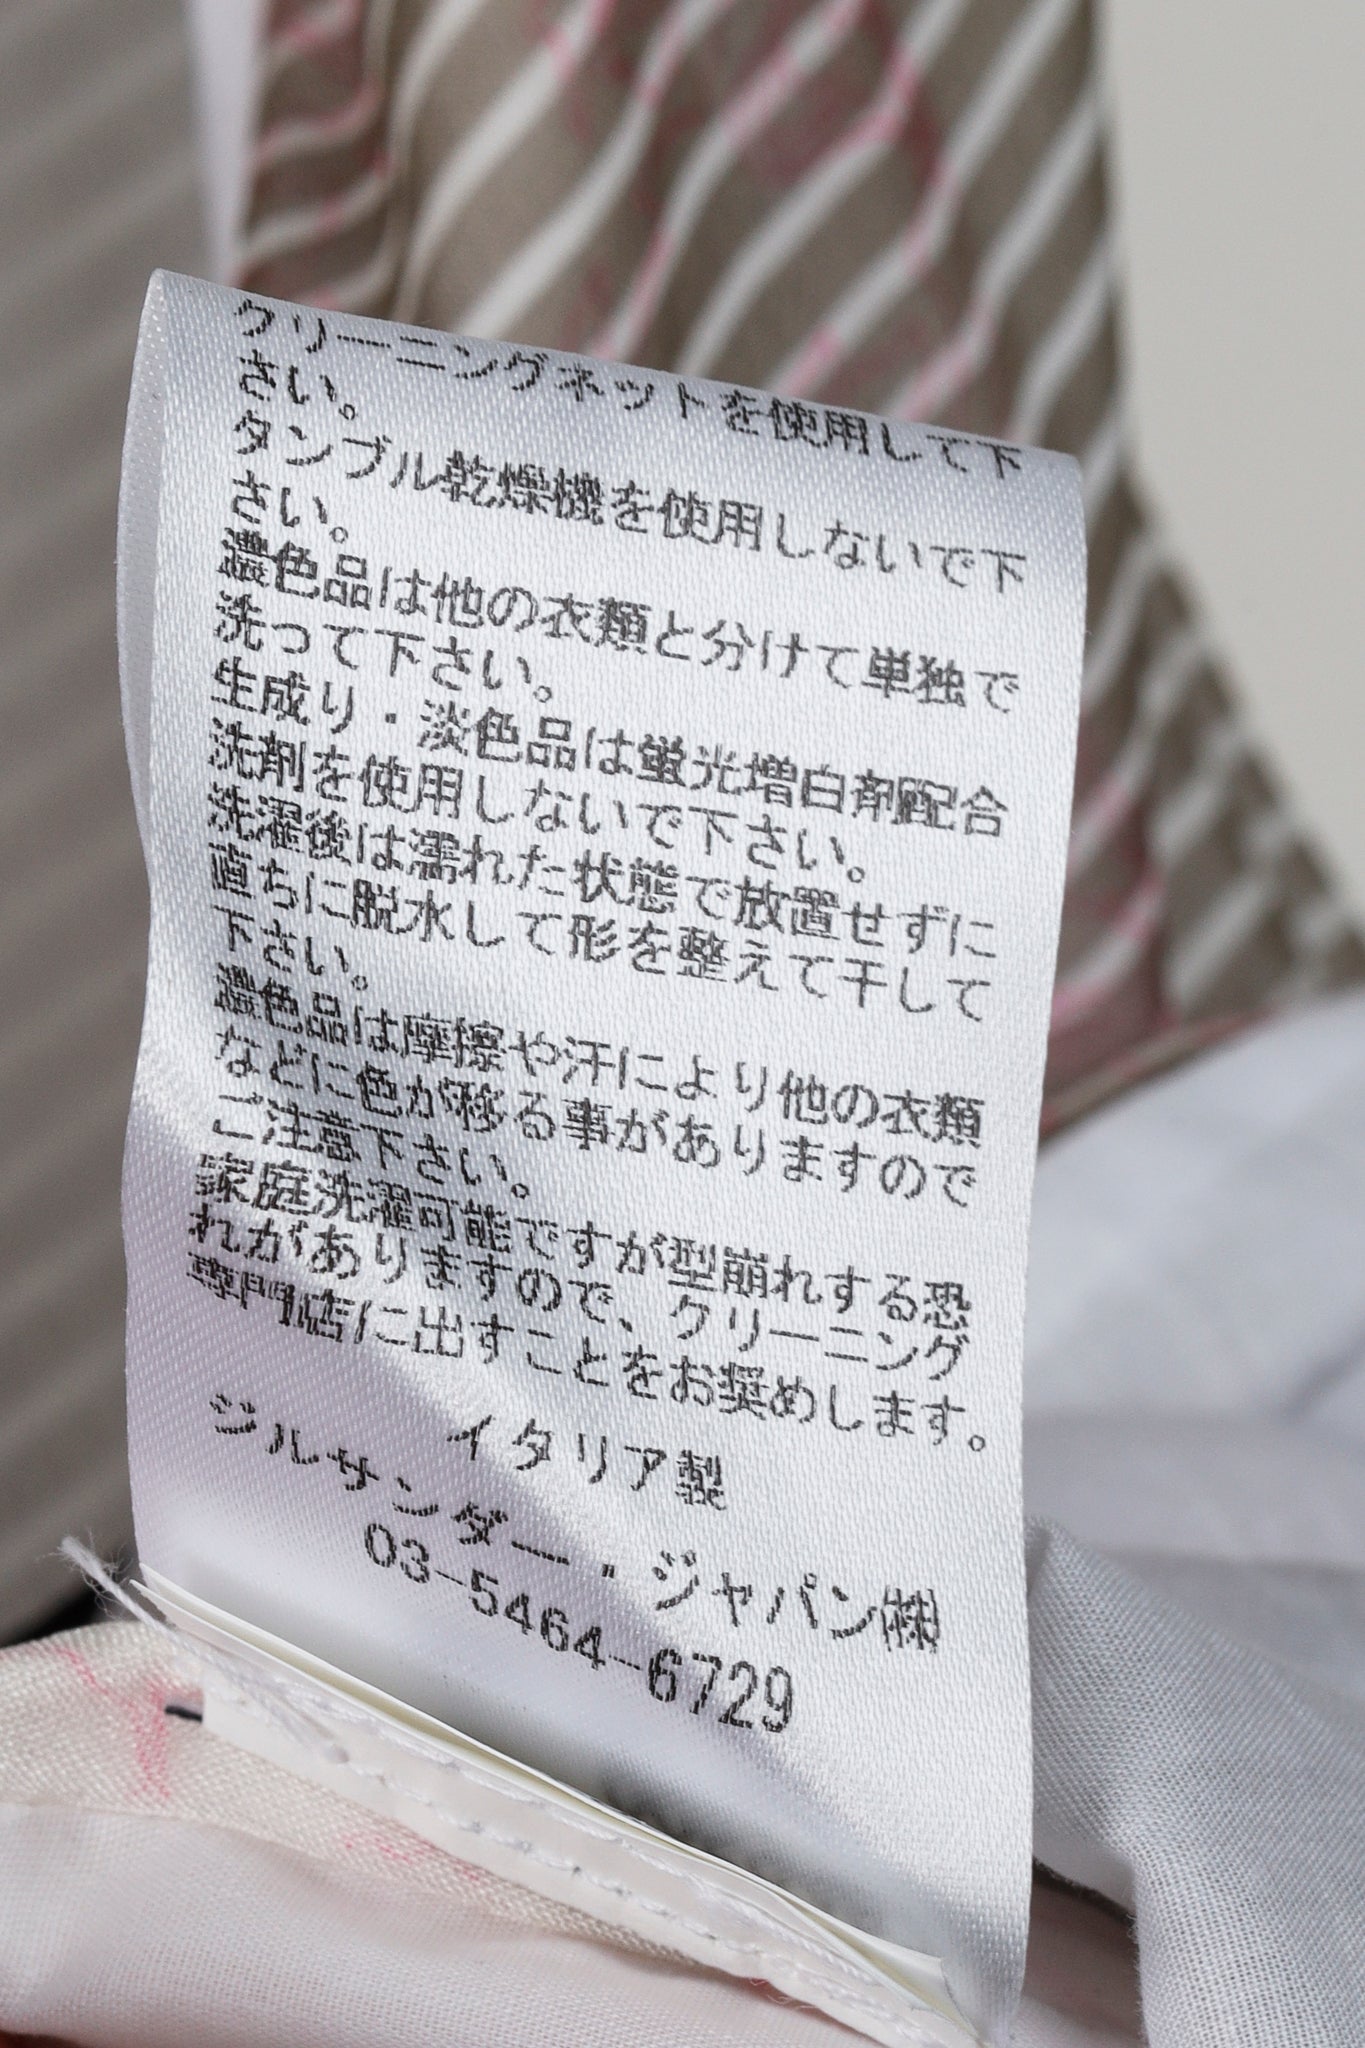 クリーニングネットを使用して下
さい。
タンブル乾燥機を使用しないで下
さい。
濃色品は他の衣類と分けて単独で
洗って下さい。
生成り・淡色品は蛍光増白剤配合
洗剤を使用しないで下さい。
洗濯後は濡れた状態で放置せずに
直ちに脱水して形を整えて干して
下さい。
濃色品は摩擦や汗により他の衣類
などに色が移る事がありますので
ご注意下さい。
家庭洗濯可能ですが型崩れする恐
れがありますので、クリーニング
専門店に出すことをお奨めします。
イタリア製
ジルサンダー・ジャパン㈱
03-5464-6729